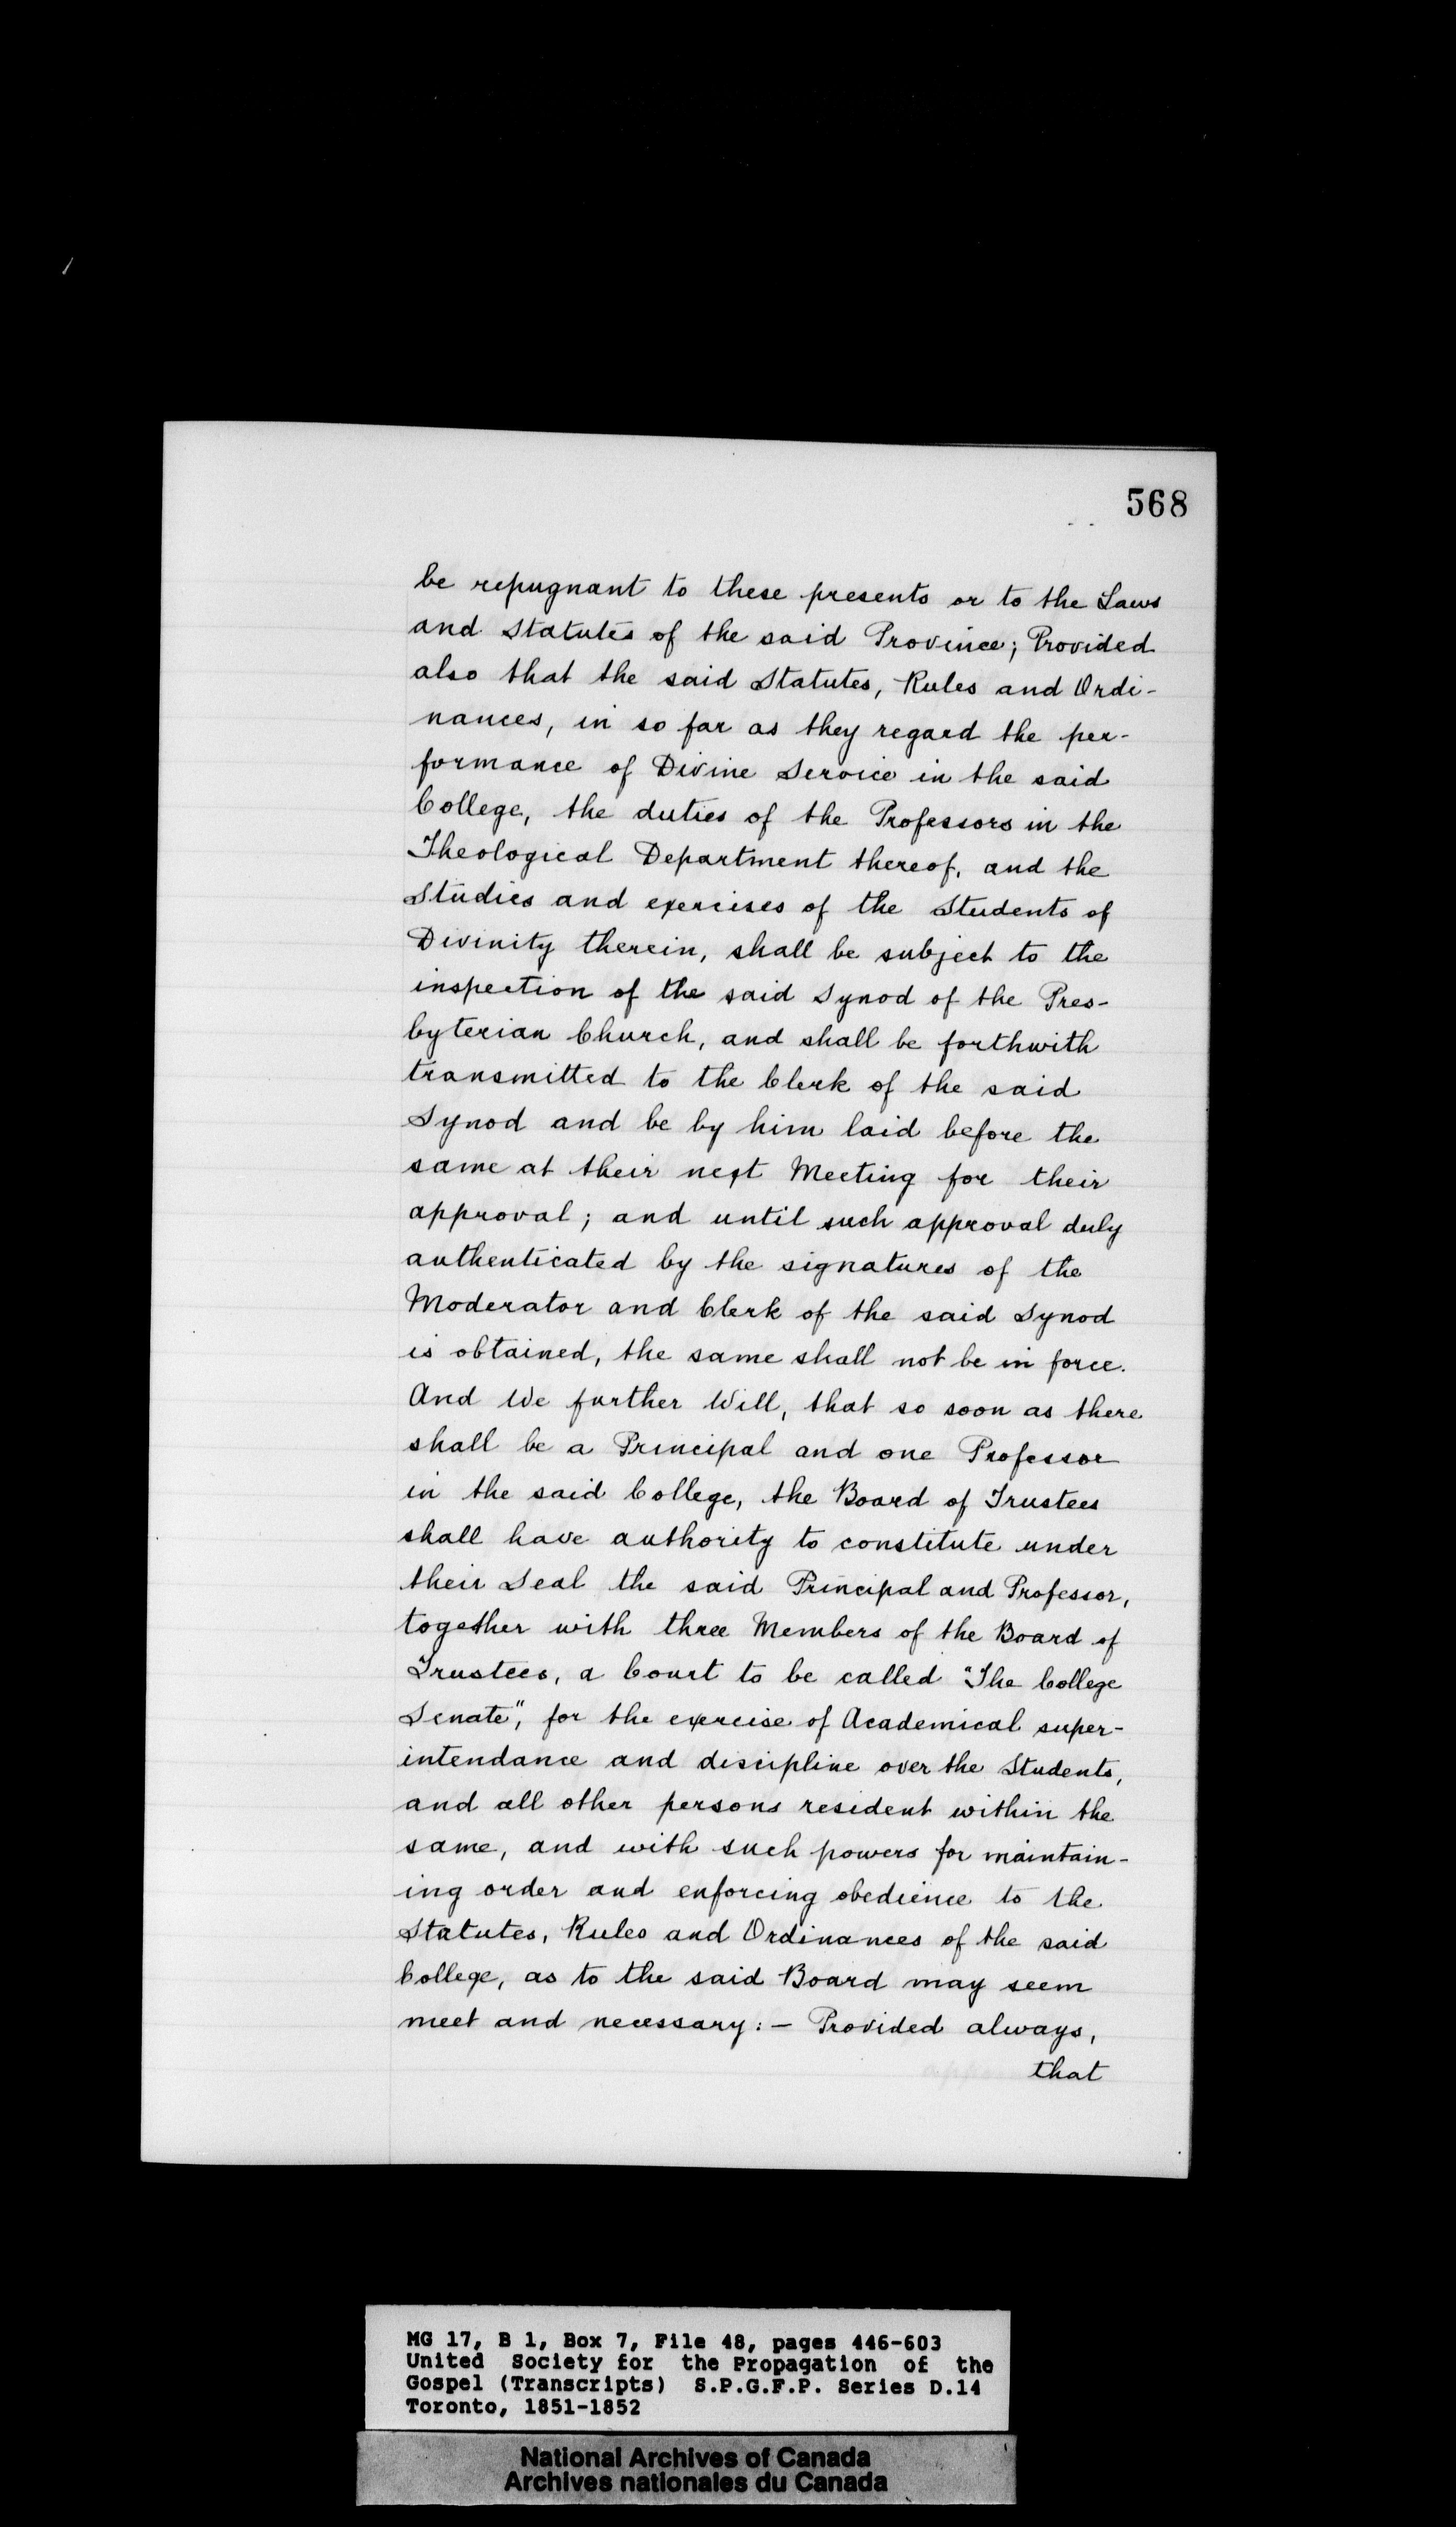 568
be repugnant to these presents or to the Laws
and Statutes of the said Province; Provided
also that the said Statutes, Rules and Ordi-
nances, in so far as they regard the per-
formance of Divine Service in the said
College, the duties of the Professors in the
Theological Department thereof, and the
Studies and exercises of the Students of
Divinity therein, shall be subject to the
inspection of the said Synod of the Pres-
byterian Church, and shall be forthwith
transmitted to the Clerk of the said
Synod and be by him laid before the
same at their next Meeting for their
approval; and until such approval duly
authenticated by the signatures of the
Moderator and Clerk of the said Synod
is obtained, the same shall not be in force.
And We further Will, that so soon as there
shall be a Principal and one Professor
in the said College, the Board of Trustees
shall have authority to constitute under
their Seal the said Principal and Professor,
together with three Members of the Board of
Trustees, a Court to be called "The College
Senate", for the exercise of Academical super-
intendance and discipline over the Students,
and all other persons resident within the
same, and with such powers for maintain-
ing order and enforcing obedience to the
Statutes, Rules and Ordinances of the said
College, as to the said Board may seem
meet and necessary:— Provided always,
that
MG 17, B 1, Box 7, File 48, pages 446-603
United Society for the Propagation of the
Gospel (Transcripts) S.P.G.F.P. Series D.14
Toronto, 1851-1852
National Archives of Canada
Archives nationales du Canada